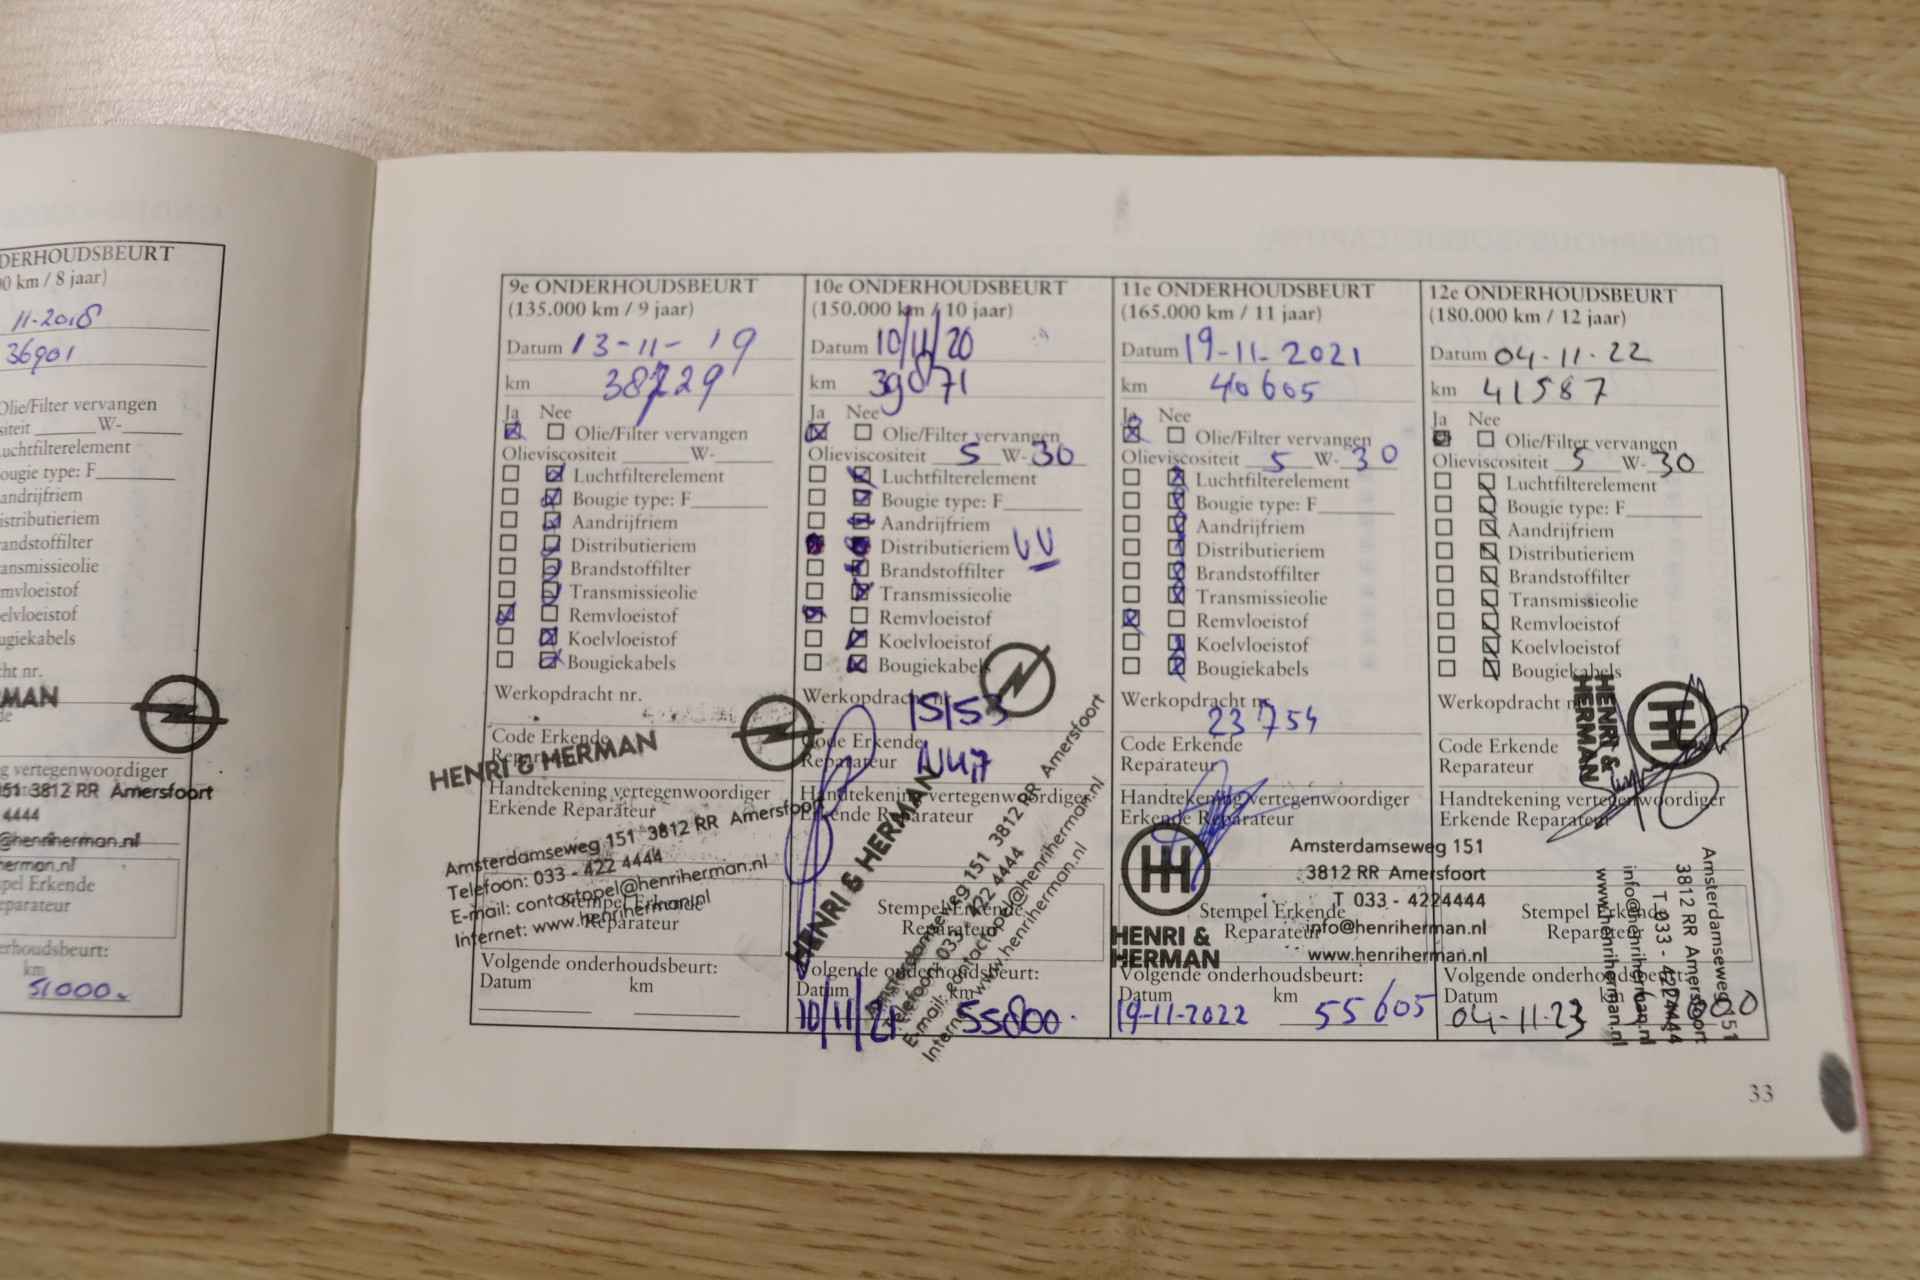 NDERHOUDSBEURT
00 km / 8 jaar)
11-2018
36901
Olie/Filter vervangen
siteit W-
uchtfilterelement
ougie type: F
andrijfriem
istributieriem
andstoffilter
ansmissieolie
mvloeistof
elvloeistof
ugiekabels
ht nr.
MAN
g vertegenwoordiger
151 3812 RR Amersfoort
4444
@henriherman.nl
herman.nl
pel Erkende
eparateur
erhoudsbeurt:
km
51000
9e ONDERHOUDSBEURT
(135.000 km / 9 jaar)
Datum 13-11-19
km 38729
Ja Nee
Olie/Filter vervangen
Olieviscositeit W-
Luchtfilterelement
Bougie type: F
Aandrijfriem
Distributieriem
Brandstoffilter
Transmissieolie
Remvloeistof
Koelvloeistof
Bougiekabels
Werkopdracht nr.
Code Erkende
Reparateur
HENRI & HERMAN
Handtekening vertegenwoordiger
Erkende Reparateur
Amsterdamseweg 151 3812 RR Amersfoort
Telefoon: 033 - 422 4444
E-mail: contactopel@henriherman.nl
Internet: www.henriherman.nl
Stempel Erkende
Reparateur
Volgende onderhoudsbeurt:
Datum km
10e ONDERHOUDSBEURT
(150.000 km / 10 jaar)
Datum 10/11/20
km 39071
Ja Nee
Olie/Filter vervangen
Olieviscositeit 5 W-30
Luchtfilterelement
Bougie type: F
Aandrijfriem
Distributieriem
Brandstoffilter
Transmissieolie
Remvloeistof
Koelvloeistof
Bougiekabels
Werkopdracht nr.
15153
Code Erkende
Reparateur
Handtekening vertegenwoordiger
Erkende Reparateur
HENRI & HERMAN
Amsterdamseweg 151 3812 RR Amersfoort
Telefoon: 033 - 422 4444
E-mail: contactopel@henriherman.nl
Internet: www.henriherman.nl
Stempel Erkende
Reparateur
Volgende onderhoudsbeurt:
Datum km
10/11/21 55800
11e ONDERHOUDSBEURT
(165.000 km / 11 jaar)
Datum 19-11-2021
km 40605
Ja Nee
Olie/Filter vervangen
Olieviscositeit 5 W-30
Luchtfilterelement
Bougie type: F
Aandrijfriem
Distributieriem
Brandstoffilter
Transmissieolie
Remvloeistof
Koelvloeistof
Bougiekabels
Werkopdracht nr.
23754
Code Erkende
Reparateur
Handtekening vertegenwoordiger
Erkende Reparateur
HENRI &
HERMAN
Amsterdamseweg 151
3812 RR Amersfoort
T 033 - 4224444
info@henriherman.nl
www.henriherman.nl
Stempel Erkende
Reparateur
Volgende onderhoudsbeurt:
Datum km
19-11-2022 55605
12e ONDERHOUDSBEURT
(180.000 km / 12 jaar)
Datum 04-11-22
km 41587
Ja Nee
Olie/Filter vervangen
Olieviscositeit 5 W-30
Luchtfilterelement
Bougie type: F
Aandrijfriem
Distributieriem
Brandstoffilter
Transmissieolie
Remvloeistof
Koelvloeistof
Bougiekabels
Werkopdracht
HENRI &
HERMAN
Code Erkende
Reparateur
Handtekening vertegenwoordiger
Erkende Reparateur
Amsterdamseweg 151
3812 RR Amersfoort
T 033 - 4224444
info@henriherman.nl
www.henriherman.nl
Stempel Erkende
Reparateur
Volgende onderhoudsbeurt:
Datum km
04-11-23
33